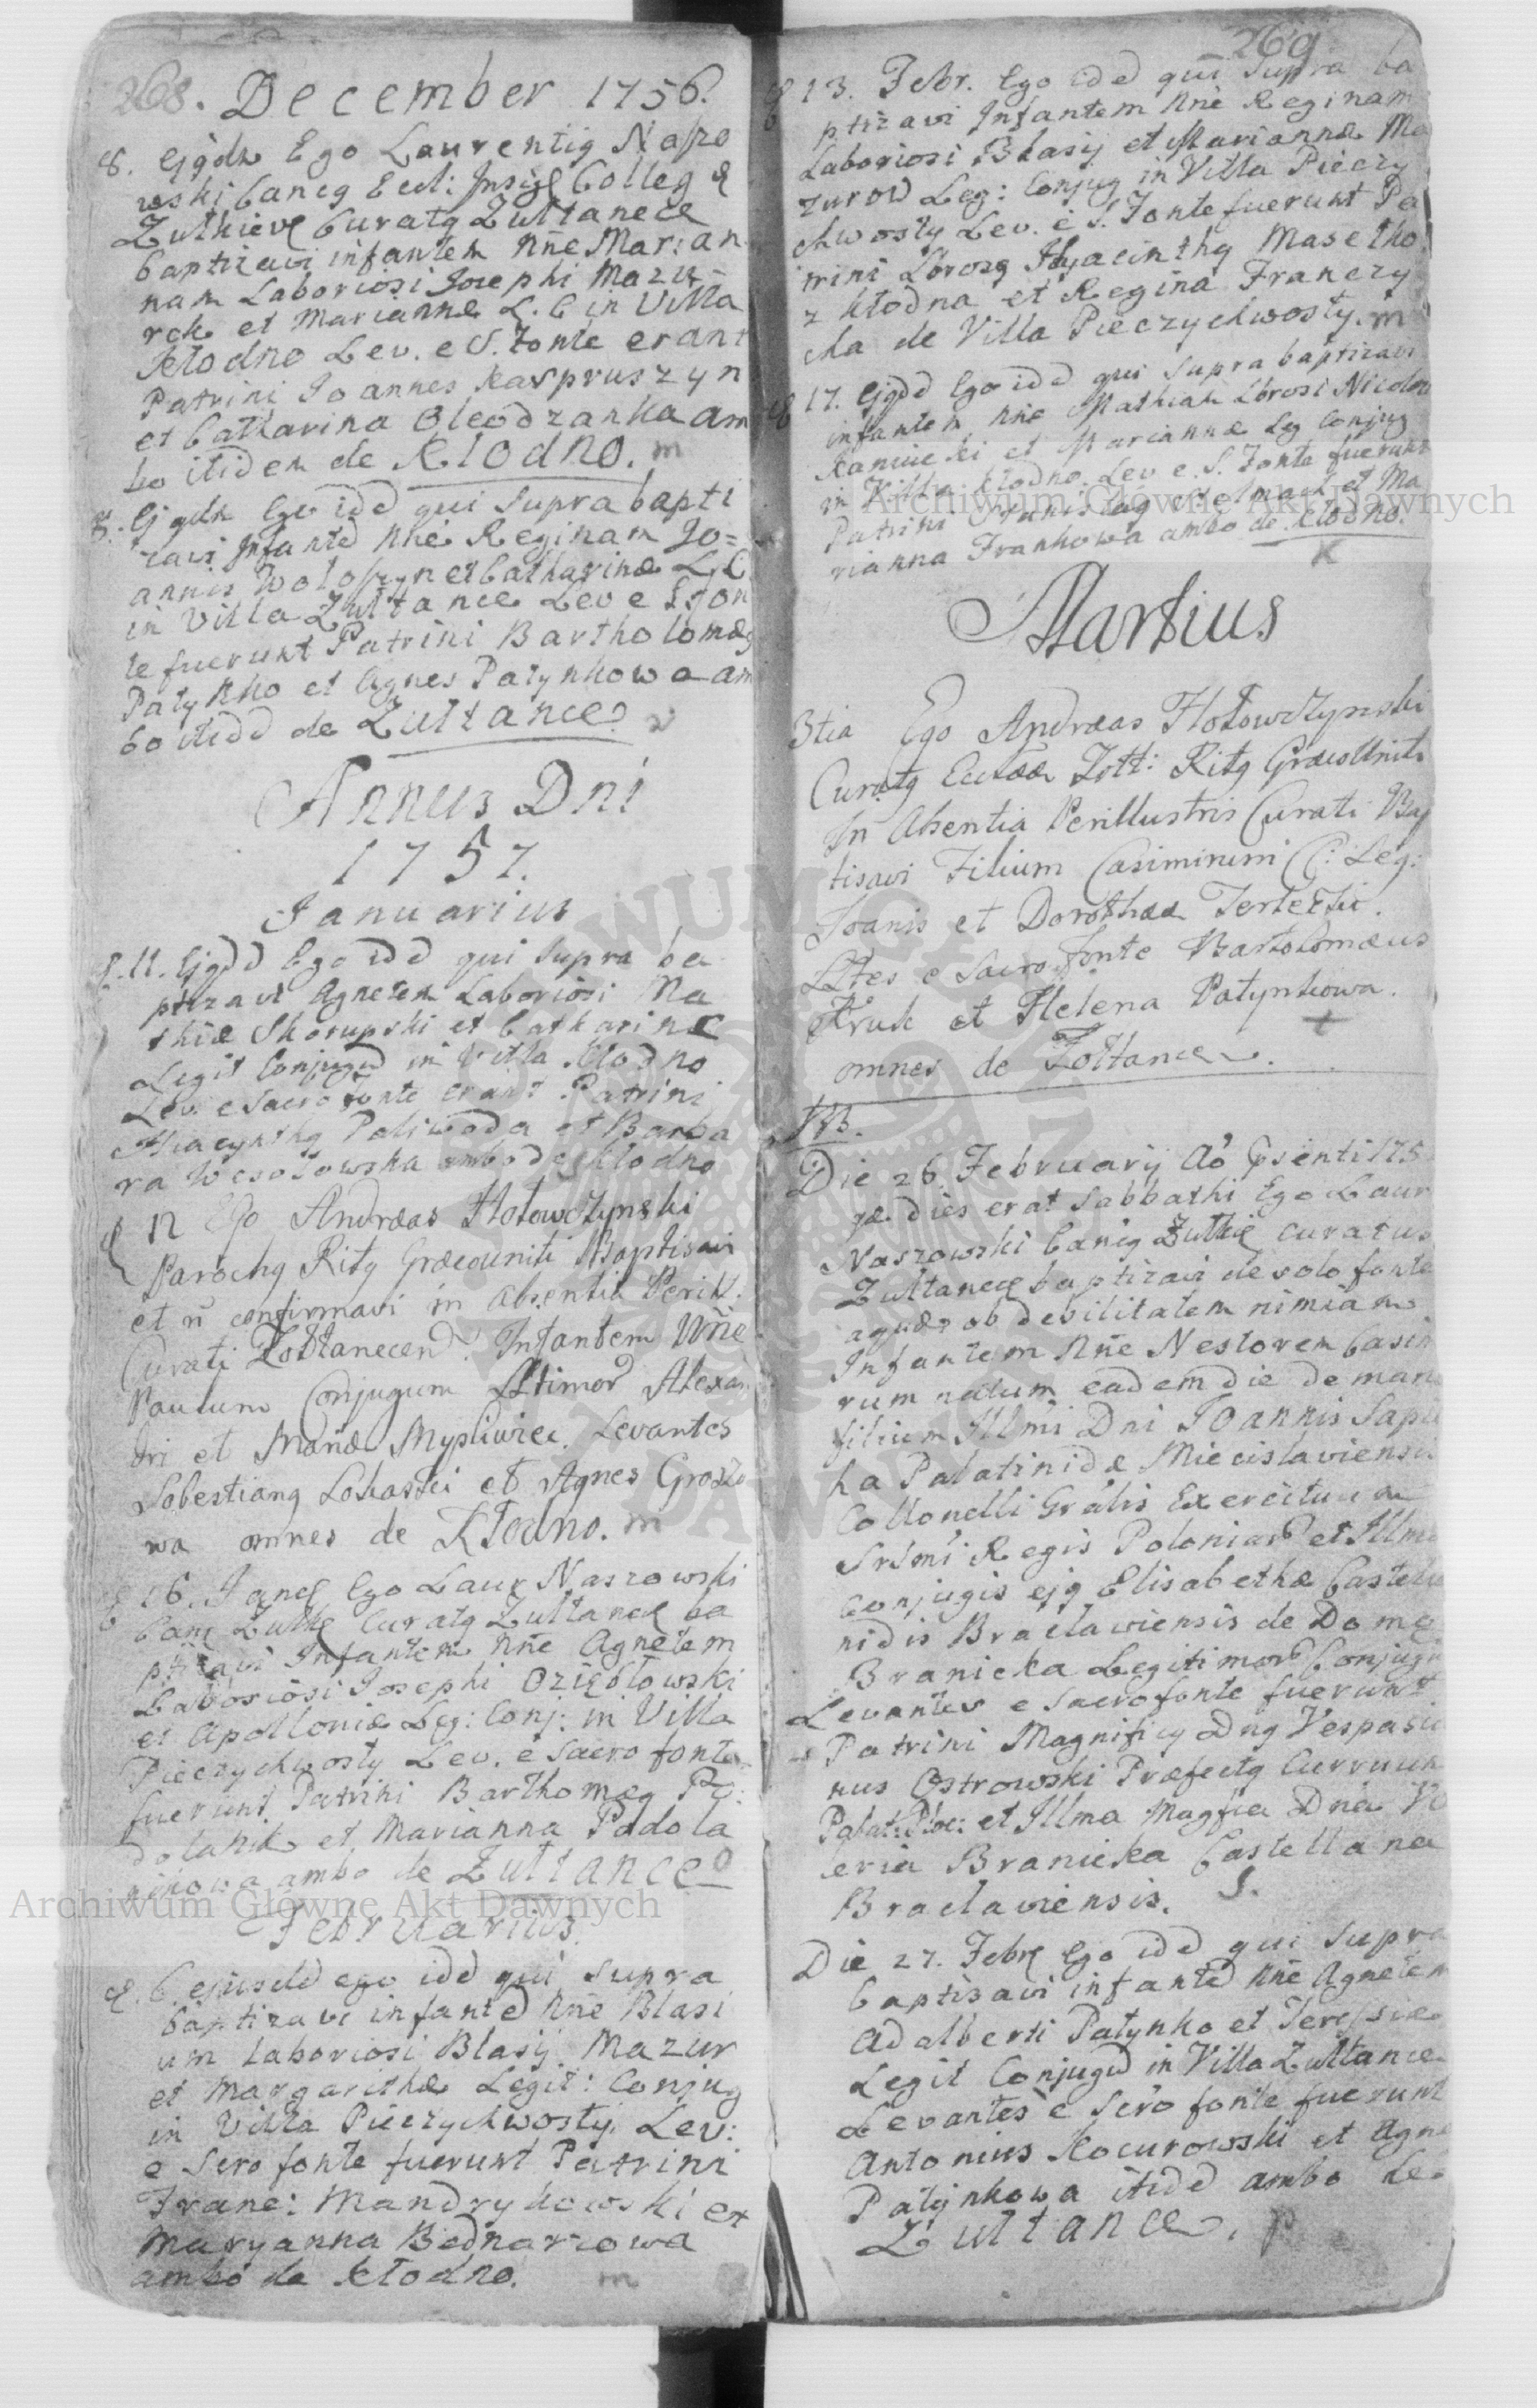 268. December 1756.
8. Ejqdm Ego Laurentig Naszo
wski Cancg Eccl: Insig Colleg
Zulkiev Curatg Zultanece
baptizavi infantem Nne Marian
nam Laboriosi Josephi Mazu
rek et Marianne L. C in Villa
Kłodno Lev. e S. Fonte erant
Patrini Joannes Kaspruszyn
et Catharina Oleodzanka am
bo itidem de Klodno. m
8. Ejqdm Ego idd qui supra bapti
zavi Infantd Nne Reginam Jo=
annis Woloszyn et Catharinæ L. C
in Villa Zultance Lev e S. fon
te fuerunt Patrini Bartholomæg
Patynko et Agnes Patynkowa am
bo itidd de Zultance.
Annus Dni
1757.
Januarius
11. Ejqdd Ego idd qui supra ba
ptizavi Agnetem Laboriosi Ma
thiæ Skorupski et Catharinæ
Legit Conjugd in Villa Kłodno
Lev. e Sacro fonte erant Patrini
Hiacynthg Poliwoda et Barba
ra Wesołowska ambo de Kłodno
12 Ego Andræas Hołowczynski
Parochg Ritg Græcouniti Baptisavi
et ñ confirmavi in absentia Perill.
Curati Żołtanecen. Infantem Nñe
Paulum Conjugum Lttimor Alexan
dri et Mañæ Mysliwiec. Levantes
Sobestiang Lobaski et Agnes Groszo
wa omnes de Kłodno. m
16. Jane Ego Laur Naszowski
Canc Zulke Curatg Zultanec ba
ptizavi Infantem Nñe Agnetem
Laboriosi Josephi Oziębłowski
et Apolloniæ Leg: Conj: in Villa
Pieczychwosty Lev. e Sacro fonte
fuerunt Patrini Barthomæg Po:
dolank et Marianna Podola
nkowa ambo de Zultance
Februarius.
6. ejusdd ego idd qui supra
baptizavi infantd Nñe Blasi
um Laboriosi Blasij Mazur
et Margarithæ Legit: Conjug
in Villa Pieczychwosty. Lev:
e Scro fonte fuerunt Patrini
Franc: Mandrykowski et
Maryanna Bednarzowa
ambo de Kłodno. m
269
13. Febr. Ego idd qui supra ba
ptizavi Infantem Nne Reginam
Laboriosi Blasij et Mariannæ Ma
zurow Leg: Conjug in Villa Pieczy
chwosty Lev. è S. Fonte fuerunt Pa
trini Lborosg Hyacinthg Masetko
z Kłodna et Regina Franczy
cha de Villa Pieczychwosty. m
17. Ejqdd Ego idd qui supra baptizavi
infantem Nñe Mathiam Lborosi Nicolai
Kaminski et Mariannæ Leg Conjug
in Villa Kłodno. Lev e. S. Fonte fuerunt
Patrini et Ma
rianna Frankowa ambo de Kłodno.
Martius
3tia Ego Andræas Hołowczynski
Curatg Eccleæ Zołt: Ritg Græcouniti
In Absentia Perillustris Curati Bap
tisavi Filium Casimirum C: Leg:
Joanis et Dorothææ Terlecki.
Lttes e Sacro fonte Bartolomæus
Kruk et Helena Patynkowa.
omnes de Żołtance.
NB.
Die 26. February Aõ Psenti 175
qæ dies erat Sabbathi Ego Laur
Naszowski Canig Zulkie curatus
Zultanec baptizavi de solo fonte
aquæ ob debilitatem nimiam
Infantem Nñe Nestorem Casim
rum natum eadem die de mane
filium Illmi Dni Joannis Sapie
ha Palatinidæ Miecislaviensis
Collonelli Grâlis Exercituum
Srsmi Regis Poloniar et Illmæ
conjugis ejg Elisabethæ Castella
nidis Braclaviensis de Domo
Branicka Legitimor Conjugu
Levantes e Sacro fonte fuerunt
Patrini Magnificg Dng Vespasia
nus Ostrowski Præfectg Curruum
Palat: Ploc: et Illma Magfica Dna Va
leria Branicka Castellana
Braclaviensis. S.
Die 27. Febr Ego idd qui supra
baptisavi infantd Nñe Agnetem
Adalberti Patynko et Teressiæ
Legit Conjugd in Villa Zultance
Levantes è Scro fonte fuerunt
Antonius Kocurowski et Agne
Patynkowa itidd ambo de
Zultance. p
Archiwum Głowne Akt Dawnych
Archiwum Głowne Akt Dawnych